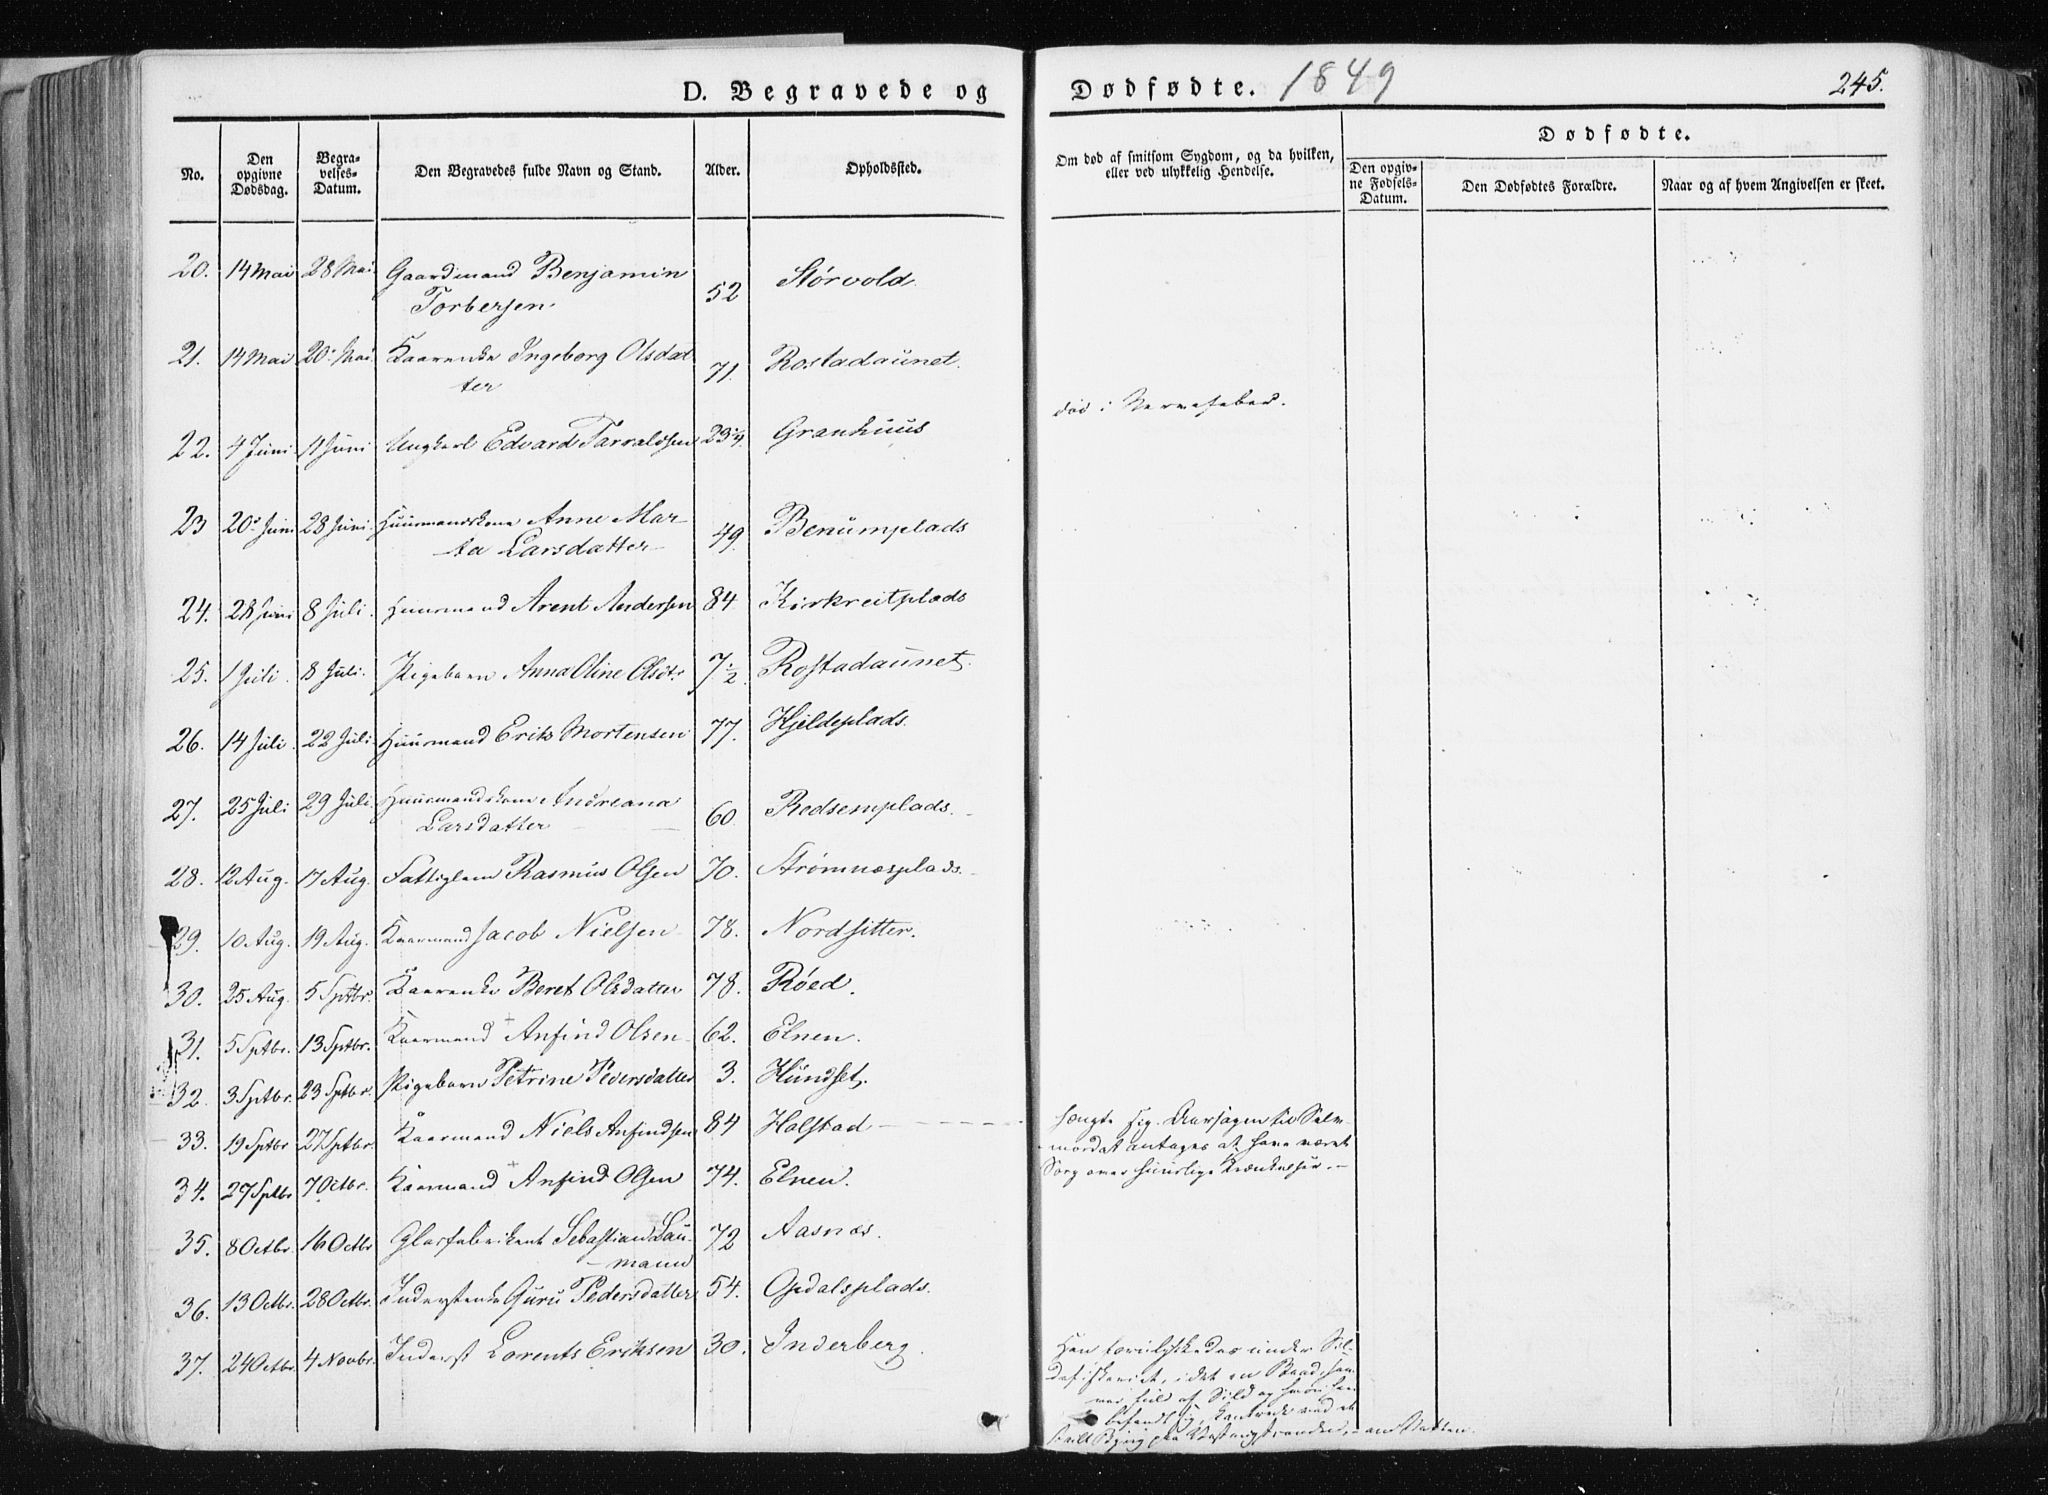 D. Begravede og Dødfødte. 1849 245.
No. Den opgivne Dødsdag. Begravelses-Datum. Den Begravedes fulde Navn og Stand. Alder. Opholdssted.
Om død af smitsom Sygdom, og da hvilken, eller ved ulykkelig Hendelse.
Dødfødte.
Den opgivne Fødsels-Datum. Den Dødfødtes Forældre. Naar og af hvem Angivelsen er skeet.
20. 14 Mai 28 Mai Gaardmand Benjamin
Torbersen. 52 Størvold.
21. 14 Mai 20 Mai Kaarenke Ingeborg Olsdat
ter 71. Rostadaunet.
22. 4 Juni 11 Juni Ungkarl Edvard Tarraldsen 23 Granhuus
død i Nervefeber.
23 20 Juni 28 Juni Huusmandskone Anne Mar
ta Larsdatter 49. Benumplads
24. 28 Juni 8 Juli. Huusmand Arent Andersen 84. Kirkreitplads
25. 1 Juli. 8 Juli. Pigebarn Anna Oline Olsdtr 7 1/2. Rostadaunet.
26. 14 Juli. 22 Juli. Huusmand Erik Mortensen 77. Hjeldeplads.
27. 25 Juli 29 Juli. Huusmandskone Andreana
Larsdatter 60. Redsemplads.
28. 12 Aug. 17 Aug. Fattiglem Rasmus Olsen 70. Strømnesplads.
29. 10 Aug. 19 Aug. Kaarmand Jacob Nielsen 78. Nordsitter.
30. 25 Aug. 5 Sptbr. Kaarenke Beret Olsdatter 78. Røed.
31. 5 Sptbr. 13 Sptbr. Kaarmand Anfind Olsen 62. Elnen.
32. 3 Sptbr. 23 Sptbr. Pigebarn Petrine Pedersdatter 3. Hundset.
33. 19 Sptbr 27 Sptbr. Kaarmand Niels Anfindsen 84 Halstad
hængte sig. Aarsagen til Selv
mordet antages at have været
Sorg over huuslige Krænkelser.
34. 27 Sptbr 7 Octbr. Kaarmand Anfind Olsen 74. Elnen.
35. 8 Octbr. 16 Octbr Glasfabrikant Sebastian Lau-
mann 72 Aasnes.
36. 13 Octbr. 28 Octbr. Inderstenke Guru Pedersdatter 54. Opdalsplads.
37. 24 Octbr. 4 Novbr. Inderst Lorents Eriksen 30. Inderberg.
Han forulykkedes under Sil-
defiskeriet, idet en Baad, som
var fuld af Sild og hvori han
befandt sig, kantrede ved et